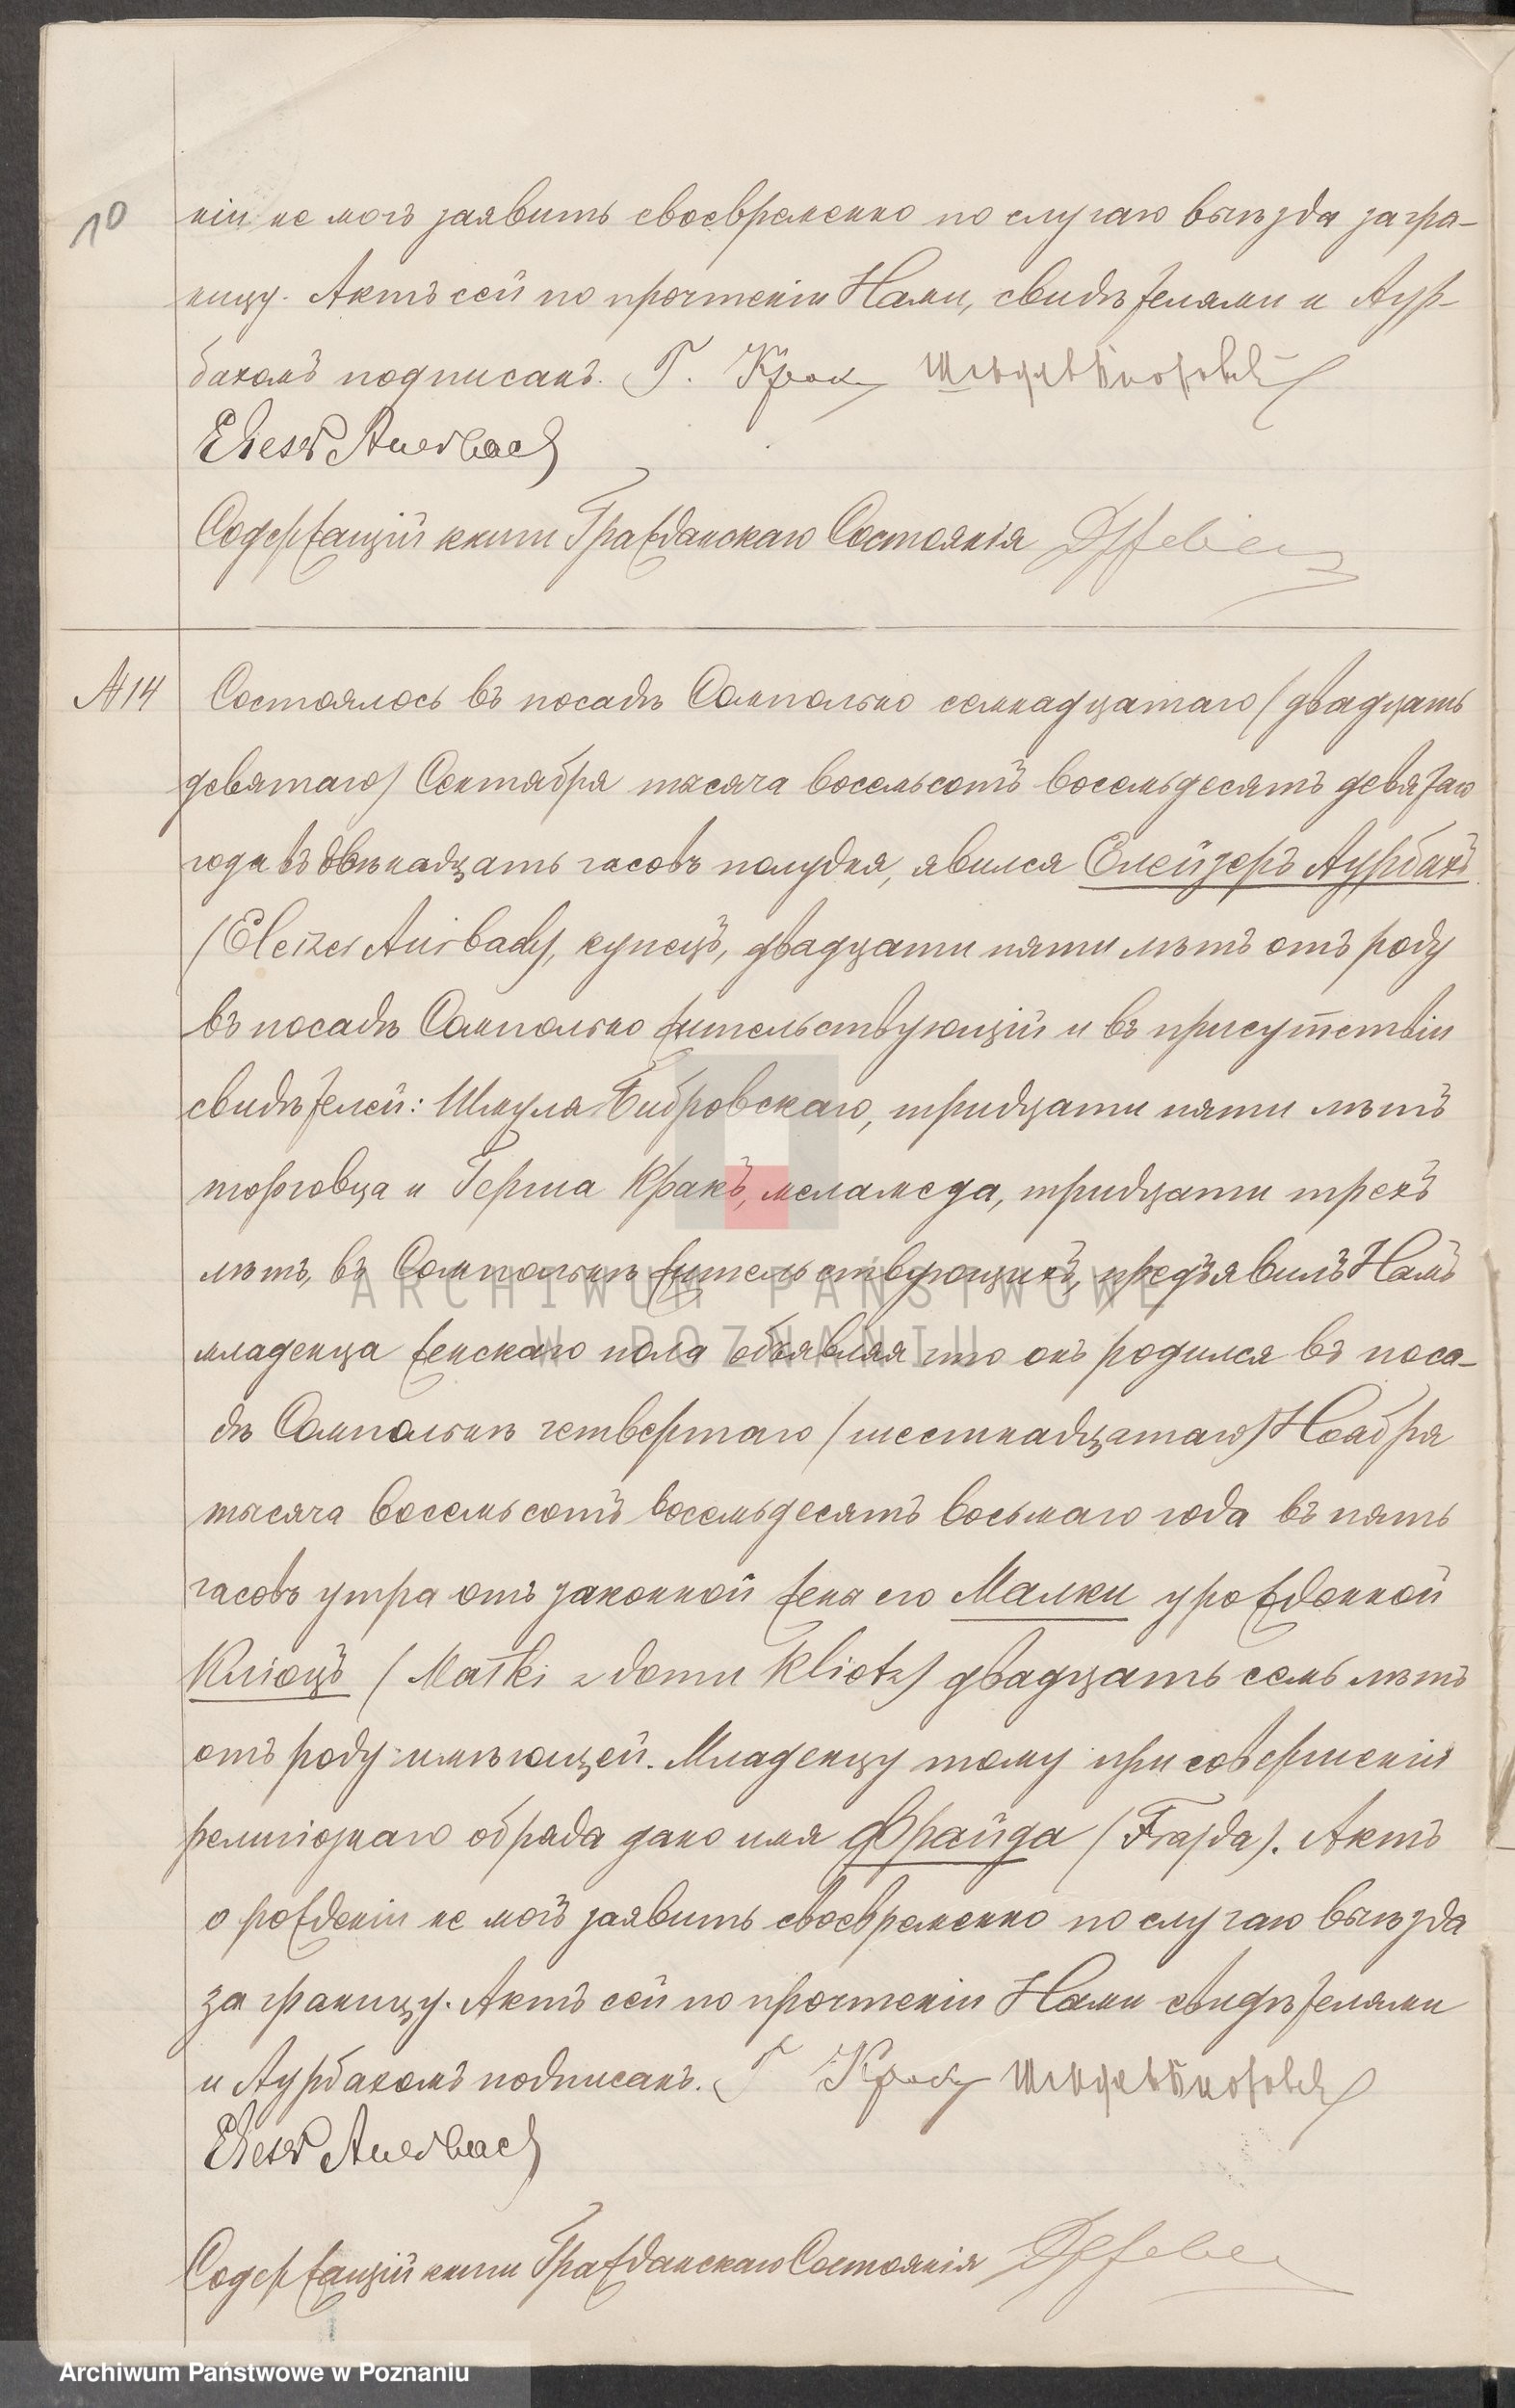 10
ніи не могъ заявить своевременно по случаю выѣзда загра-
ницу. Актъ сей по прочтеніи Нами, свидѣтелями и Аур-
бахомъ подписанъ. Г. Кракъ
Elieser Auerbach
Содержащій книги Гражданскаго Состоянія
№14
Состоялось въ посадѣ Сомпольно семнадцатаго (двадцать
девятаго) Сентября тысяча восемьсотъ восемьдесятъ девятаго
года въ двѣнадцать часовъ полудня, явился Елейзеръ Аурбахъ
(Eleizer Aurbach), купецъ, двадцати пяти лѣтъ отъ роду
въ посадѣ Сомпольно жительствующій и въ присутствіи
свидѣтелей: Шмуля Бибровскаго, тридцати пяти лѣтъ
торговца и Герша Кракъ, меламеда, тридцати трехъ
лѣтъ, въ Сомпольнѣ жительствующихъ, предъявилъ Намъ
младенца женскаго пола объявляя что онъ родился въ поса-
дѣ Сомпольнѣ четвертаго (шестнадцатаго) Ноября
тысяча восемьсотъ восемьдесятъ восьмаго года въ пять
часовъ утра отъ законной жены его Малки урожденной
Кліоцъ (Małki z domu Kliotz) двадцать семь лѣтъ
отъ роду имѣющей. Младенцу тому при совершеніи
религіознаго обряда дано имя Фрайда (Frajda). Актъ
о рожденіи не могъ заявить своевременно по случаю выѣзда
за границу. Актъ сей по прочтеніи Нами свидѣтелями
и Аурбахомъ подписанъ. Г Кракъ
Elieser Auerbach
Содержащій книги Гражданскаго Состоянія
ARCHIWUM PAŃSTWOWE
W POZNANIU
Archiwum Państwowe w Poznaniu